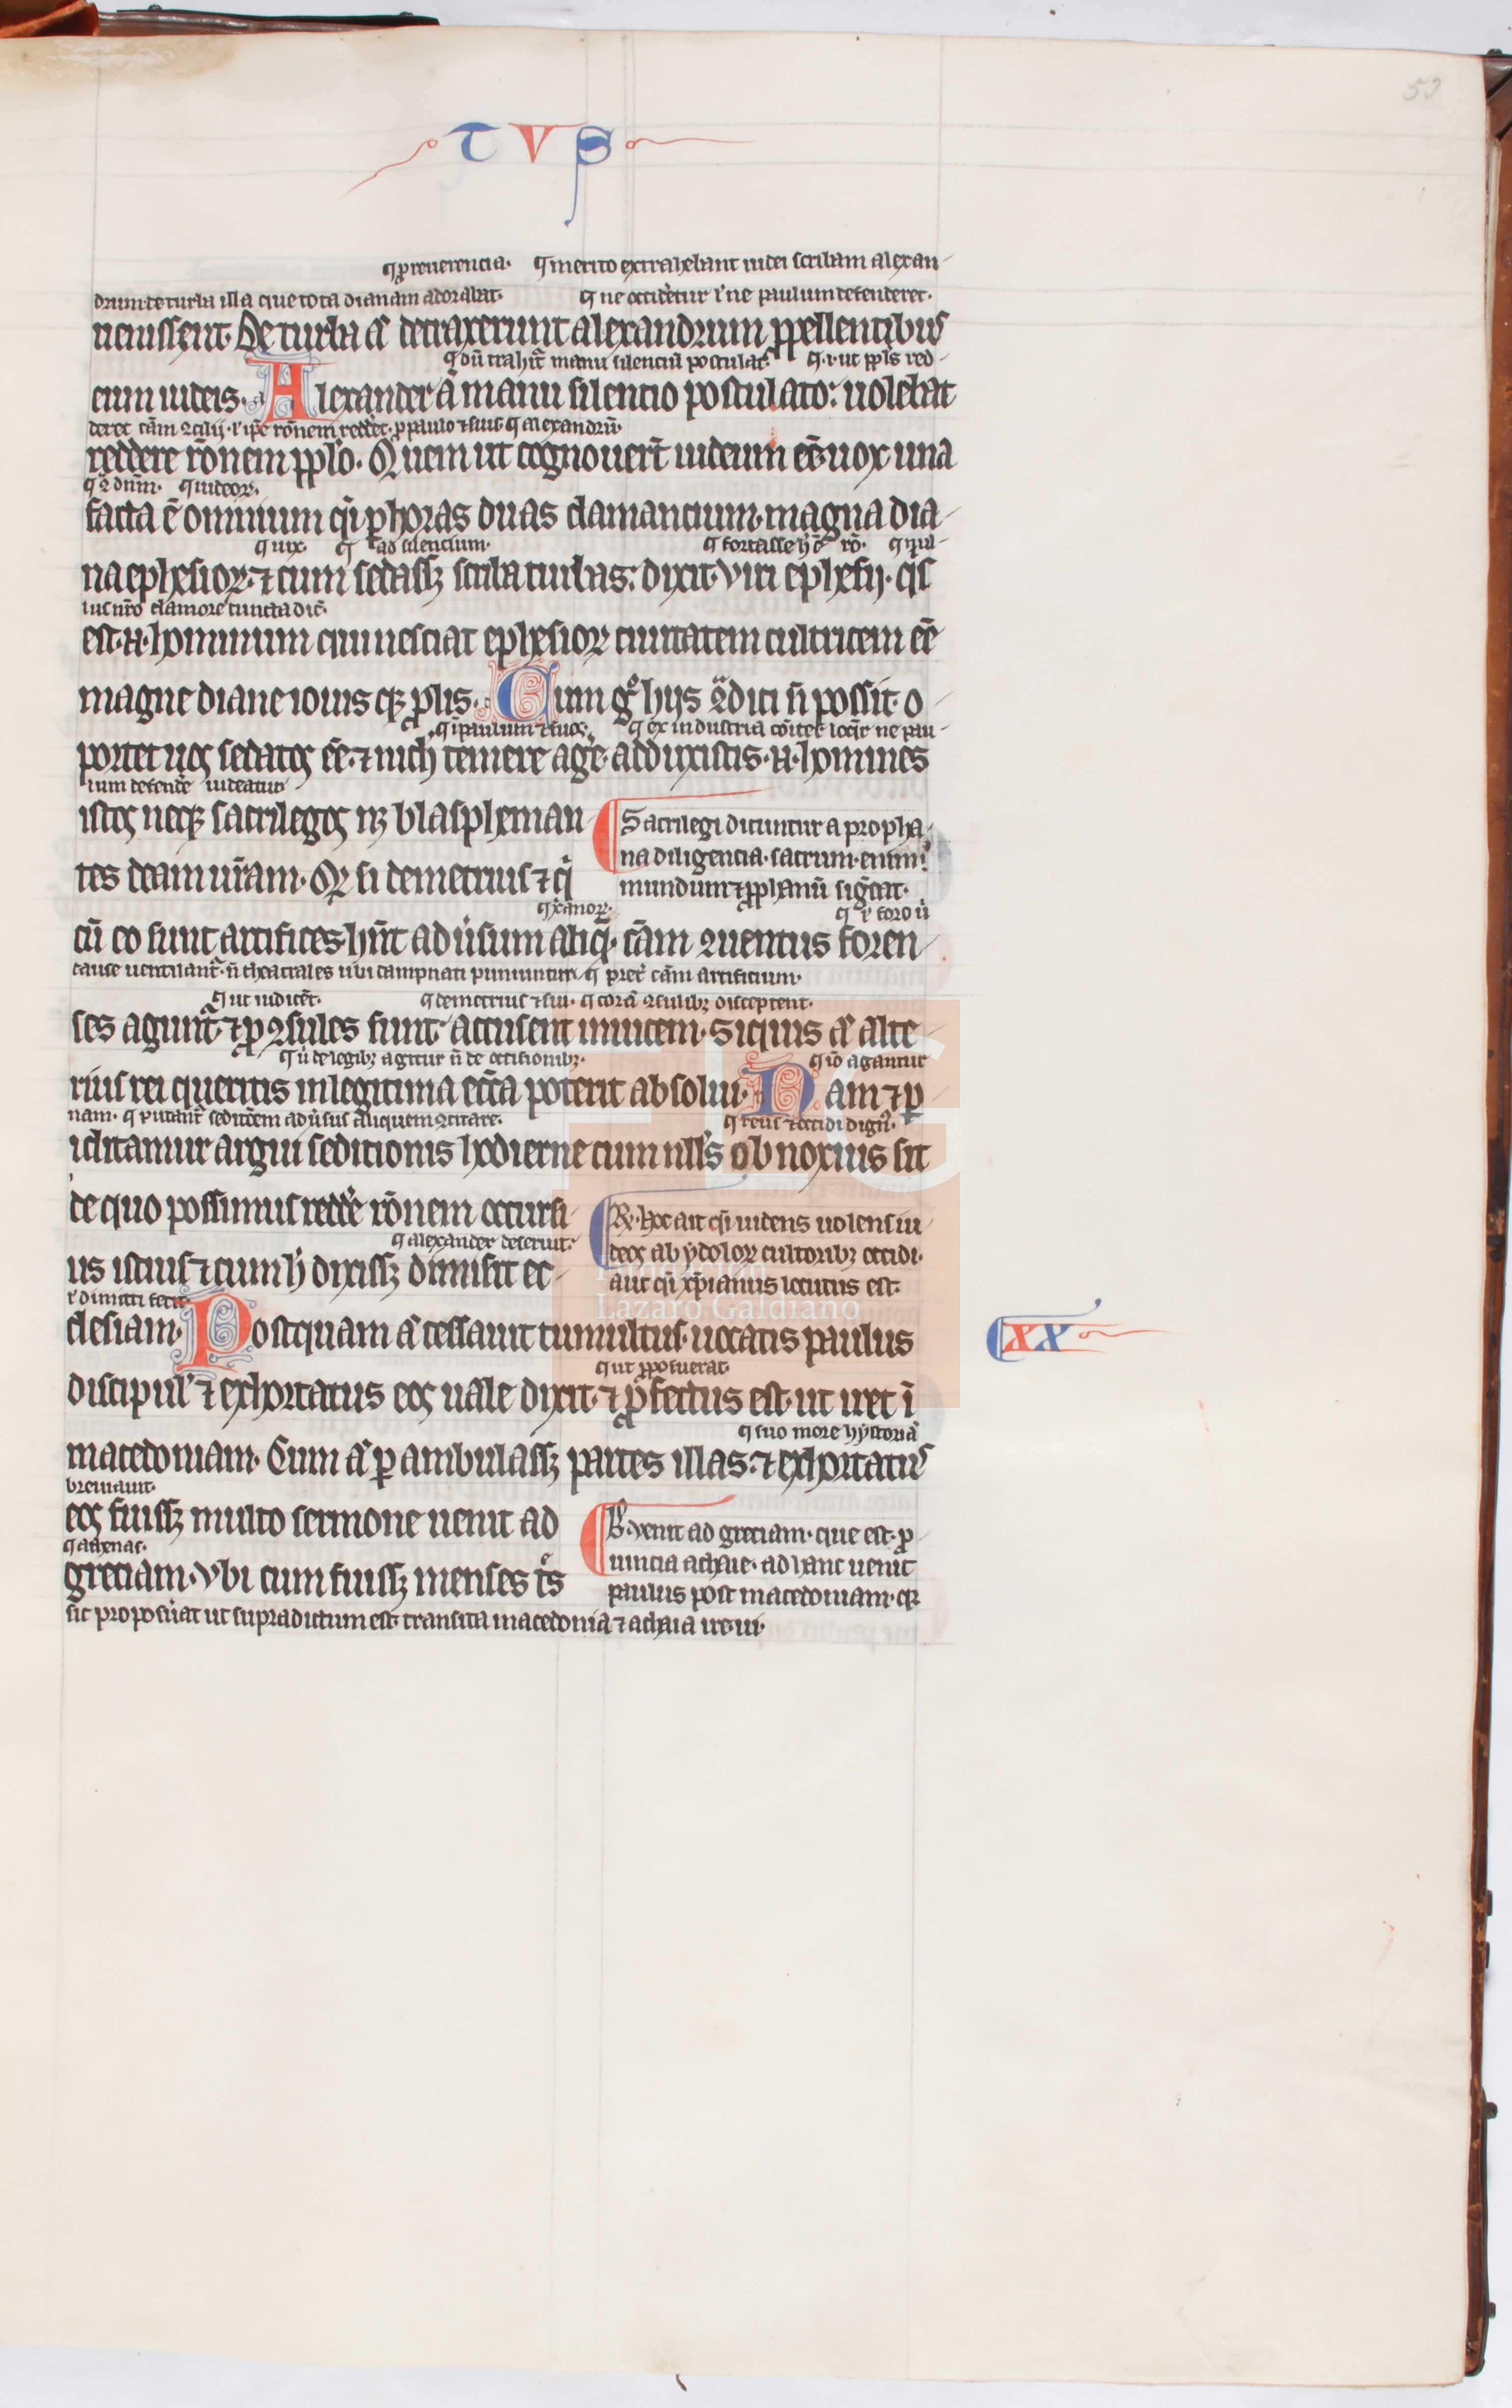 TVS
59
q̄ p reuerencia· q̄ merito extrahebant iudei scribam alexan-
drum de turba illa que tota dianam adorabat· q̄ ne occidetur ł ne paulum defenderet·
uenissent· De turba aͥ detraxerunt alexandrum ꝓpellentibus
q̄ dū trahit᷑ manu silenciū postulat· q̄·i·ut ppl̄s red-
eum iudeis· Alexander aͥ manu silencio postulato: uolebat
deret cām ꝯcilij·ł ip̄e rōnem redderet· p paulo ⁊ suis q̄ alexandrū·
reddere rōnem ppl̄o· Quem ut cognouerūt iudeum eē· uox una
q̄ iudeoꝝ·
facta ē omnium qͣi p horas duas clamancium· magna dia-
q̄ uix· q̄ ad silencium· q̄ fortasse
na ephesioꝝ· ⁊ cum sedassꝫ scriba turbas: dixit· viri ephesij· qͥs
ius nr̄o clamore cuncta
est·n̄·hominum qui nesciat ephesioꝝ ciuitatem cultricem eē
magne diane iouis qꝫ ꝓlis· Cum gͦ hijs ꝯͣdici n̄ possit· o-
q̄ paulum ⁊ suos· q̄ ex industria ne pau-
portet uos sedatos eē· ⁊ nich̄ temere age᷑· adduxistis·n̄·homines
lum defende᷑ uideatur
istos neqꝫ sacrilegos nꝫ blaspheman-
tes deam ur̄am· Qꝫ si demetrius ⁊ qͥ
Sacrilegi dicuntur a propha-
na diligencia· sacrum·enim·
mundum ⁊ ꝓphanū sigͥcat·
q̄ xͥanoꝝ· q̄ ł foro ū
cū eo sunt artifices· hn̄t aduͥsum aliqͤ· cām ꝯuentus foren-
cause uentilant᷑· n̄ theatrales ubi dampnati puniuntur q̄ p̄ter cām artificium·
q̄ ut iudicēt· q̄ demetrius ⁊ sui· q̄ corā ꝯsulibꝫ disceptent·
ses agunt᷑· ⁊ ꝓꝯsules sunt· accusent inuicem· Siquis aͥ alte-
q̄ ū de legibꝫ agitur n̄ de occisionibꝫ· q̄ iō agantur
rius rei queritis in legitima ecc̄a poterit absolui· Nam ⁊ p-
nam· q̄ putant᷑ sedicōem aduͥsus aliquem ꝯcitare· q̄ reus ⁊ occidi dign᷒·
iclitamur argui sedicionis hodierne cum null᷒s obnoxius sit
de quo possimus redde᷑ rōnem occursi-
q̄ alexander deseruit·
us istius ⁊ cum h̄ dixissꝫ dimisit ec-
Rͣ· hoc ait qͣi uidens uolens iu-
deos ab ydoloꝝ cultoribꝫ occidi·
aut qͣi xp̄ianus locutus est·
ł dimitti fecit
clesiam· Postquam aͥ cessauit tumultus· uocatis paulus
XX
q̄ ut ꝓposuerat·
discipul᷒ ⁊ exhortatus eos uale dixit· ⁊ ꝓfectus est· ut iret ī
q̄ suo more hystoriā
macedoniam· Cum aͥ pambulassꝫ partes illas· ⁊ exhortatus
breuiauit·
eos fuissꝫ multo sermone uenit ad
q̄ athenas·
greciam· vbi cum fuissꝫ menses tͤs
B· venit ad greciam· que est· ꝓ-
uincia achaie· ad hanc uenit
paulus post macedoniam· qꝫ
sic proposuͥat ut supradictum est· transita macedonia ⁊ achaia ire·ui·
FLG
Fundación
Lázaro Galdiano